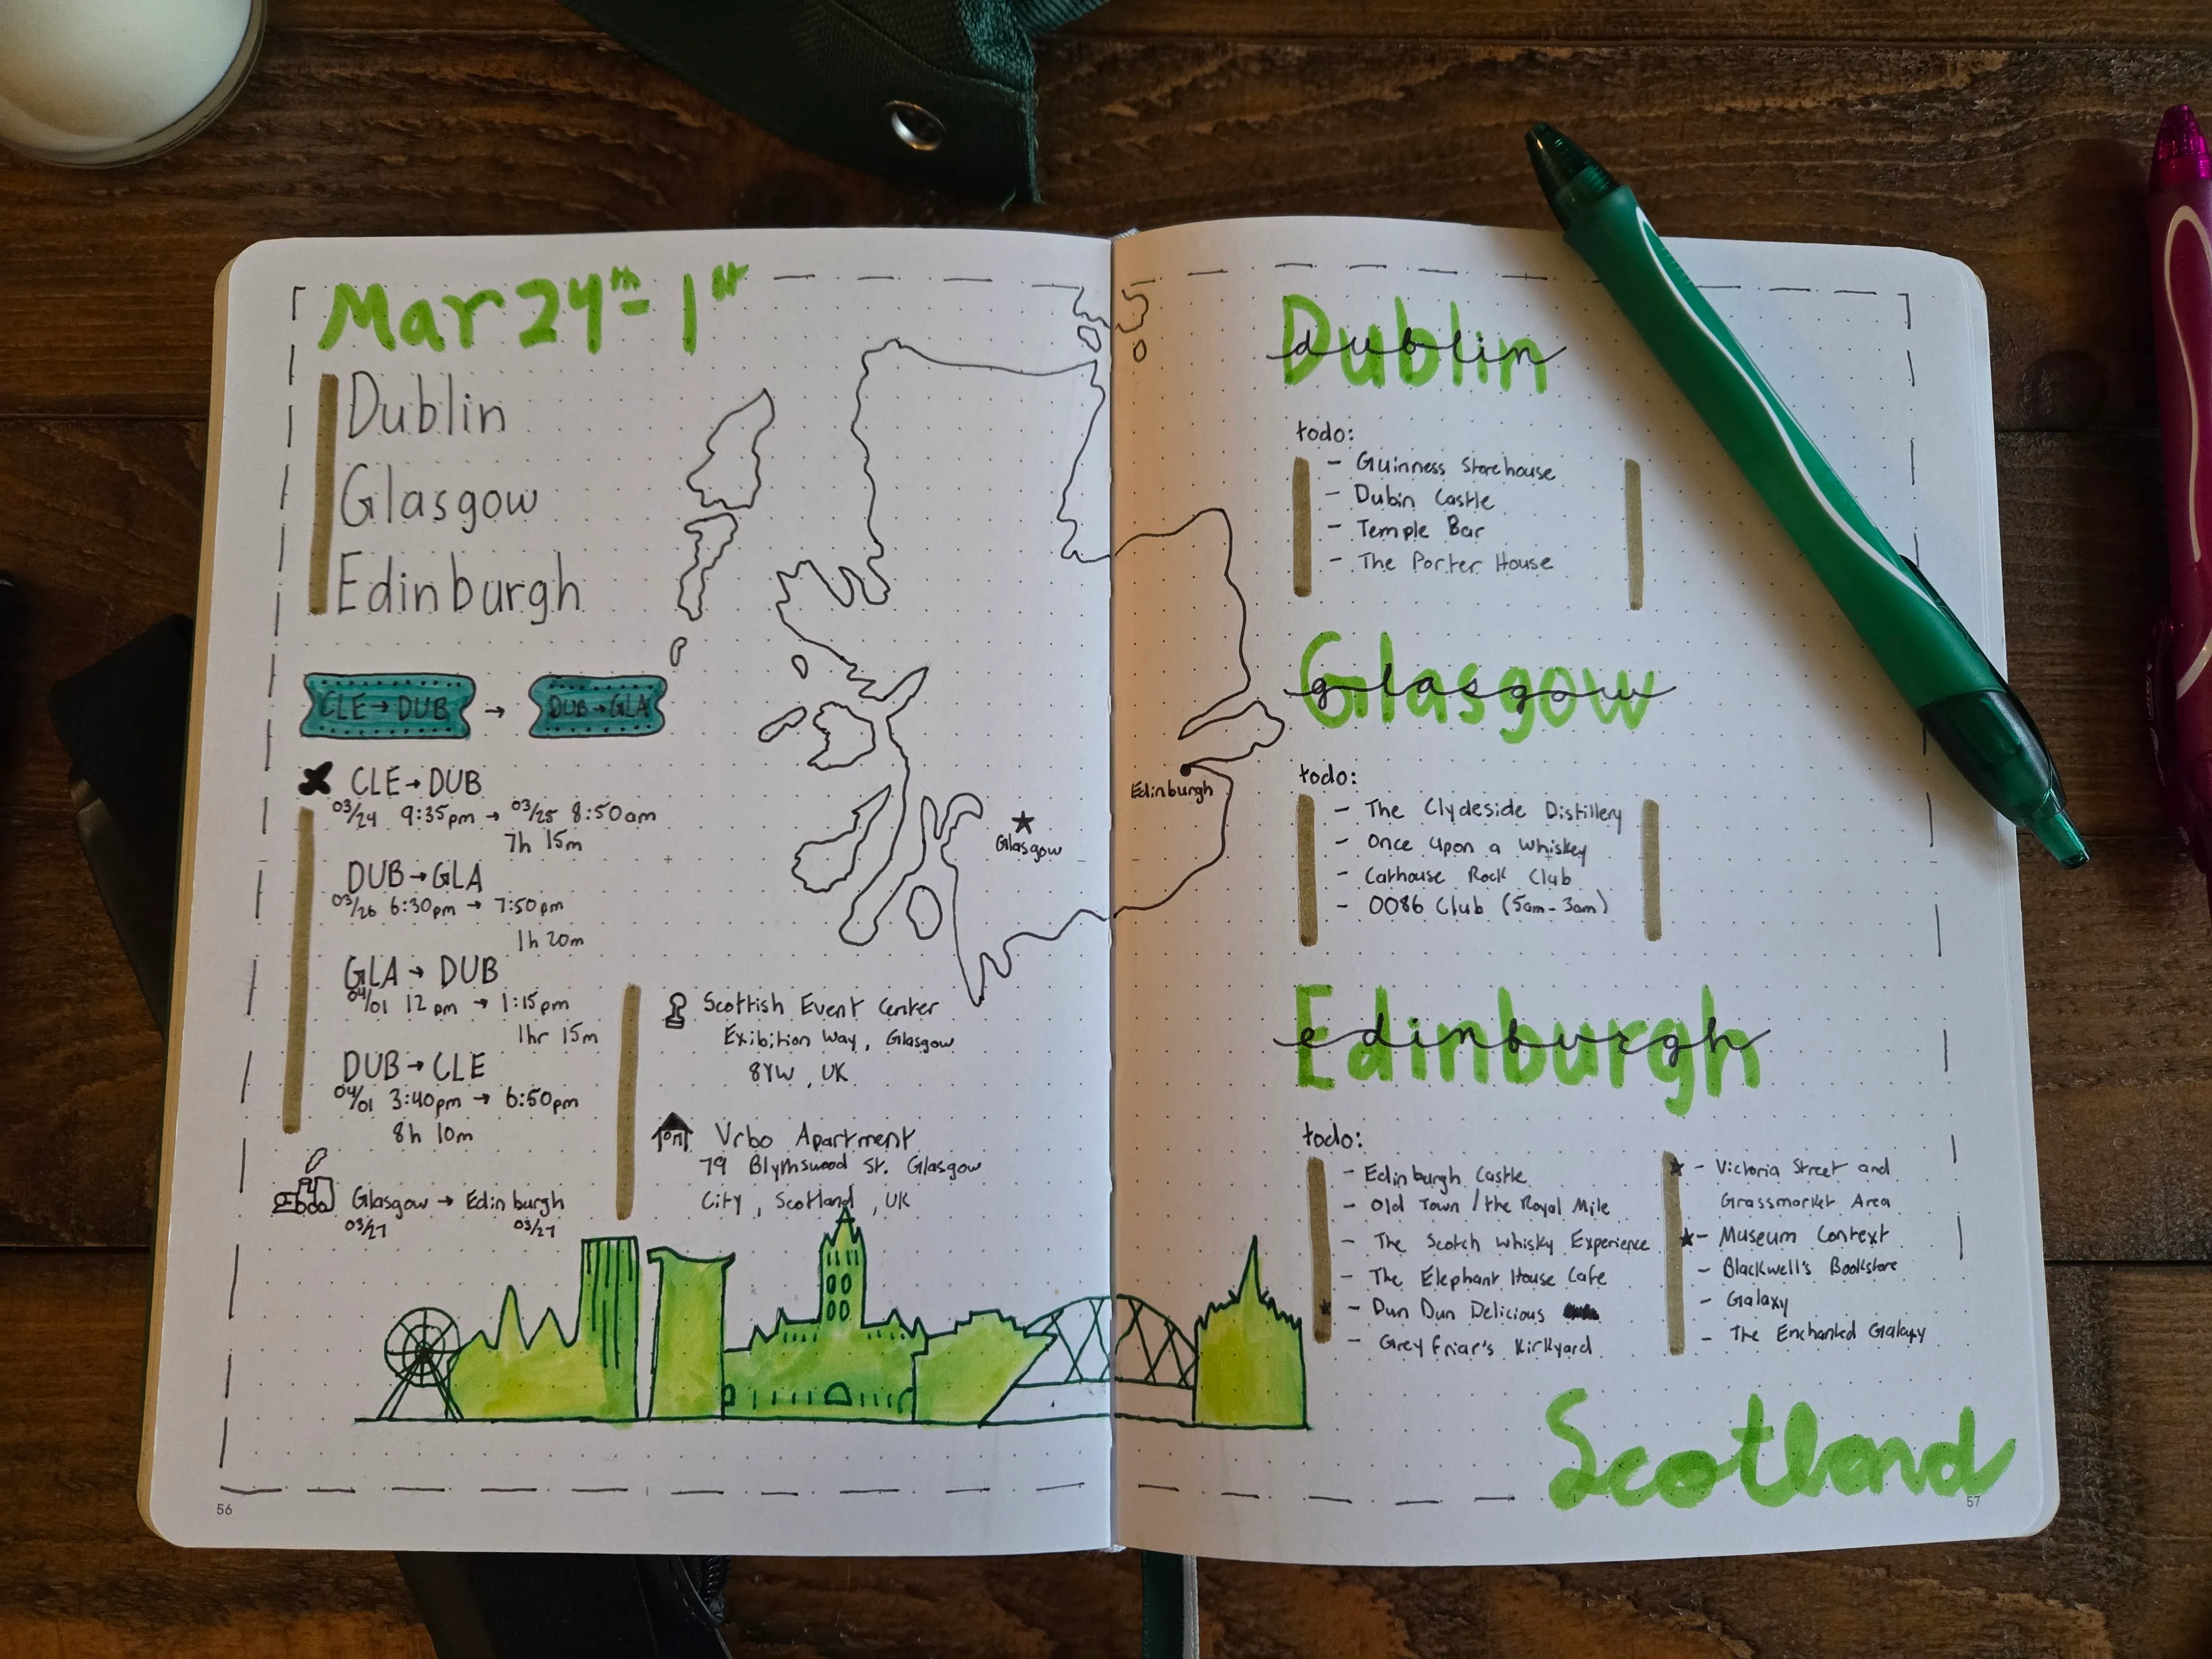 Mar 24th - 1st
Dublin
Glasgow
Edinburgh
CLE → DUB → DUB → GLA
CLE → DUB
03/24 9:35pm → 03/25 8:50am
7h 15m
DUB → GLA
03/26 6:30pm → 7:50pm
1h 20m
GLA → DUB
04/01 12pm → 1:15pm
1hr 15m
DUB → CLE
04/01 3:40pm → 6:50pm
8h 10m
Glasgow → Edinburgh
03/27 03/27
Scottish Event Center
Exibition Way, Glasgow
8YW, UK
Vrbo Apartment
79 Blythswood St. Glasgow
City, Scotland, UK
Glasgow
56
Edinburgh
Dublin
dublin
todo:
- Guinness Storehouse
- Dubin Castle
- Temple Bar
- The Porter House
Glasgow
glasgow
todo:
- The Clydeside Distillery
- Once Upon a Whiskey
- Cathouse Rock Club
- 0086 Club (5am-3am)
Edinburgh
edinburgh
todo:
- Edinburgh Castle
- Old Town / the Royal Mile
- The Scotch Whisky Experience
- The Elephant House Cafe
- Dun Dun Delicious
- Grey Friar's Kirkyard
- Victoria Street and
Grassmarket Area
- Museum Context
- Blackwell's Bookstore
- Galaxy
- The Enchanted Galaxy
Scotland
57